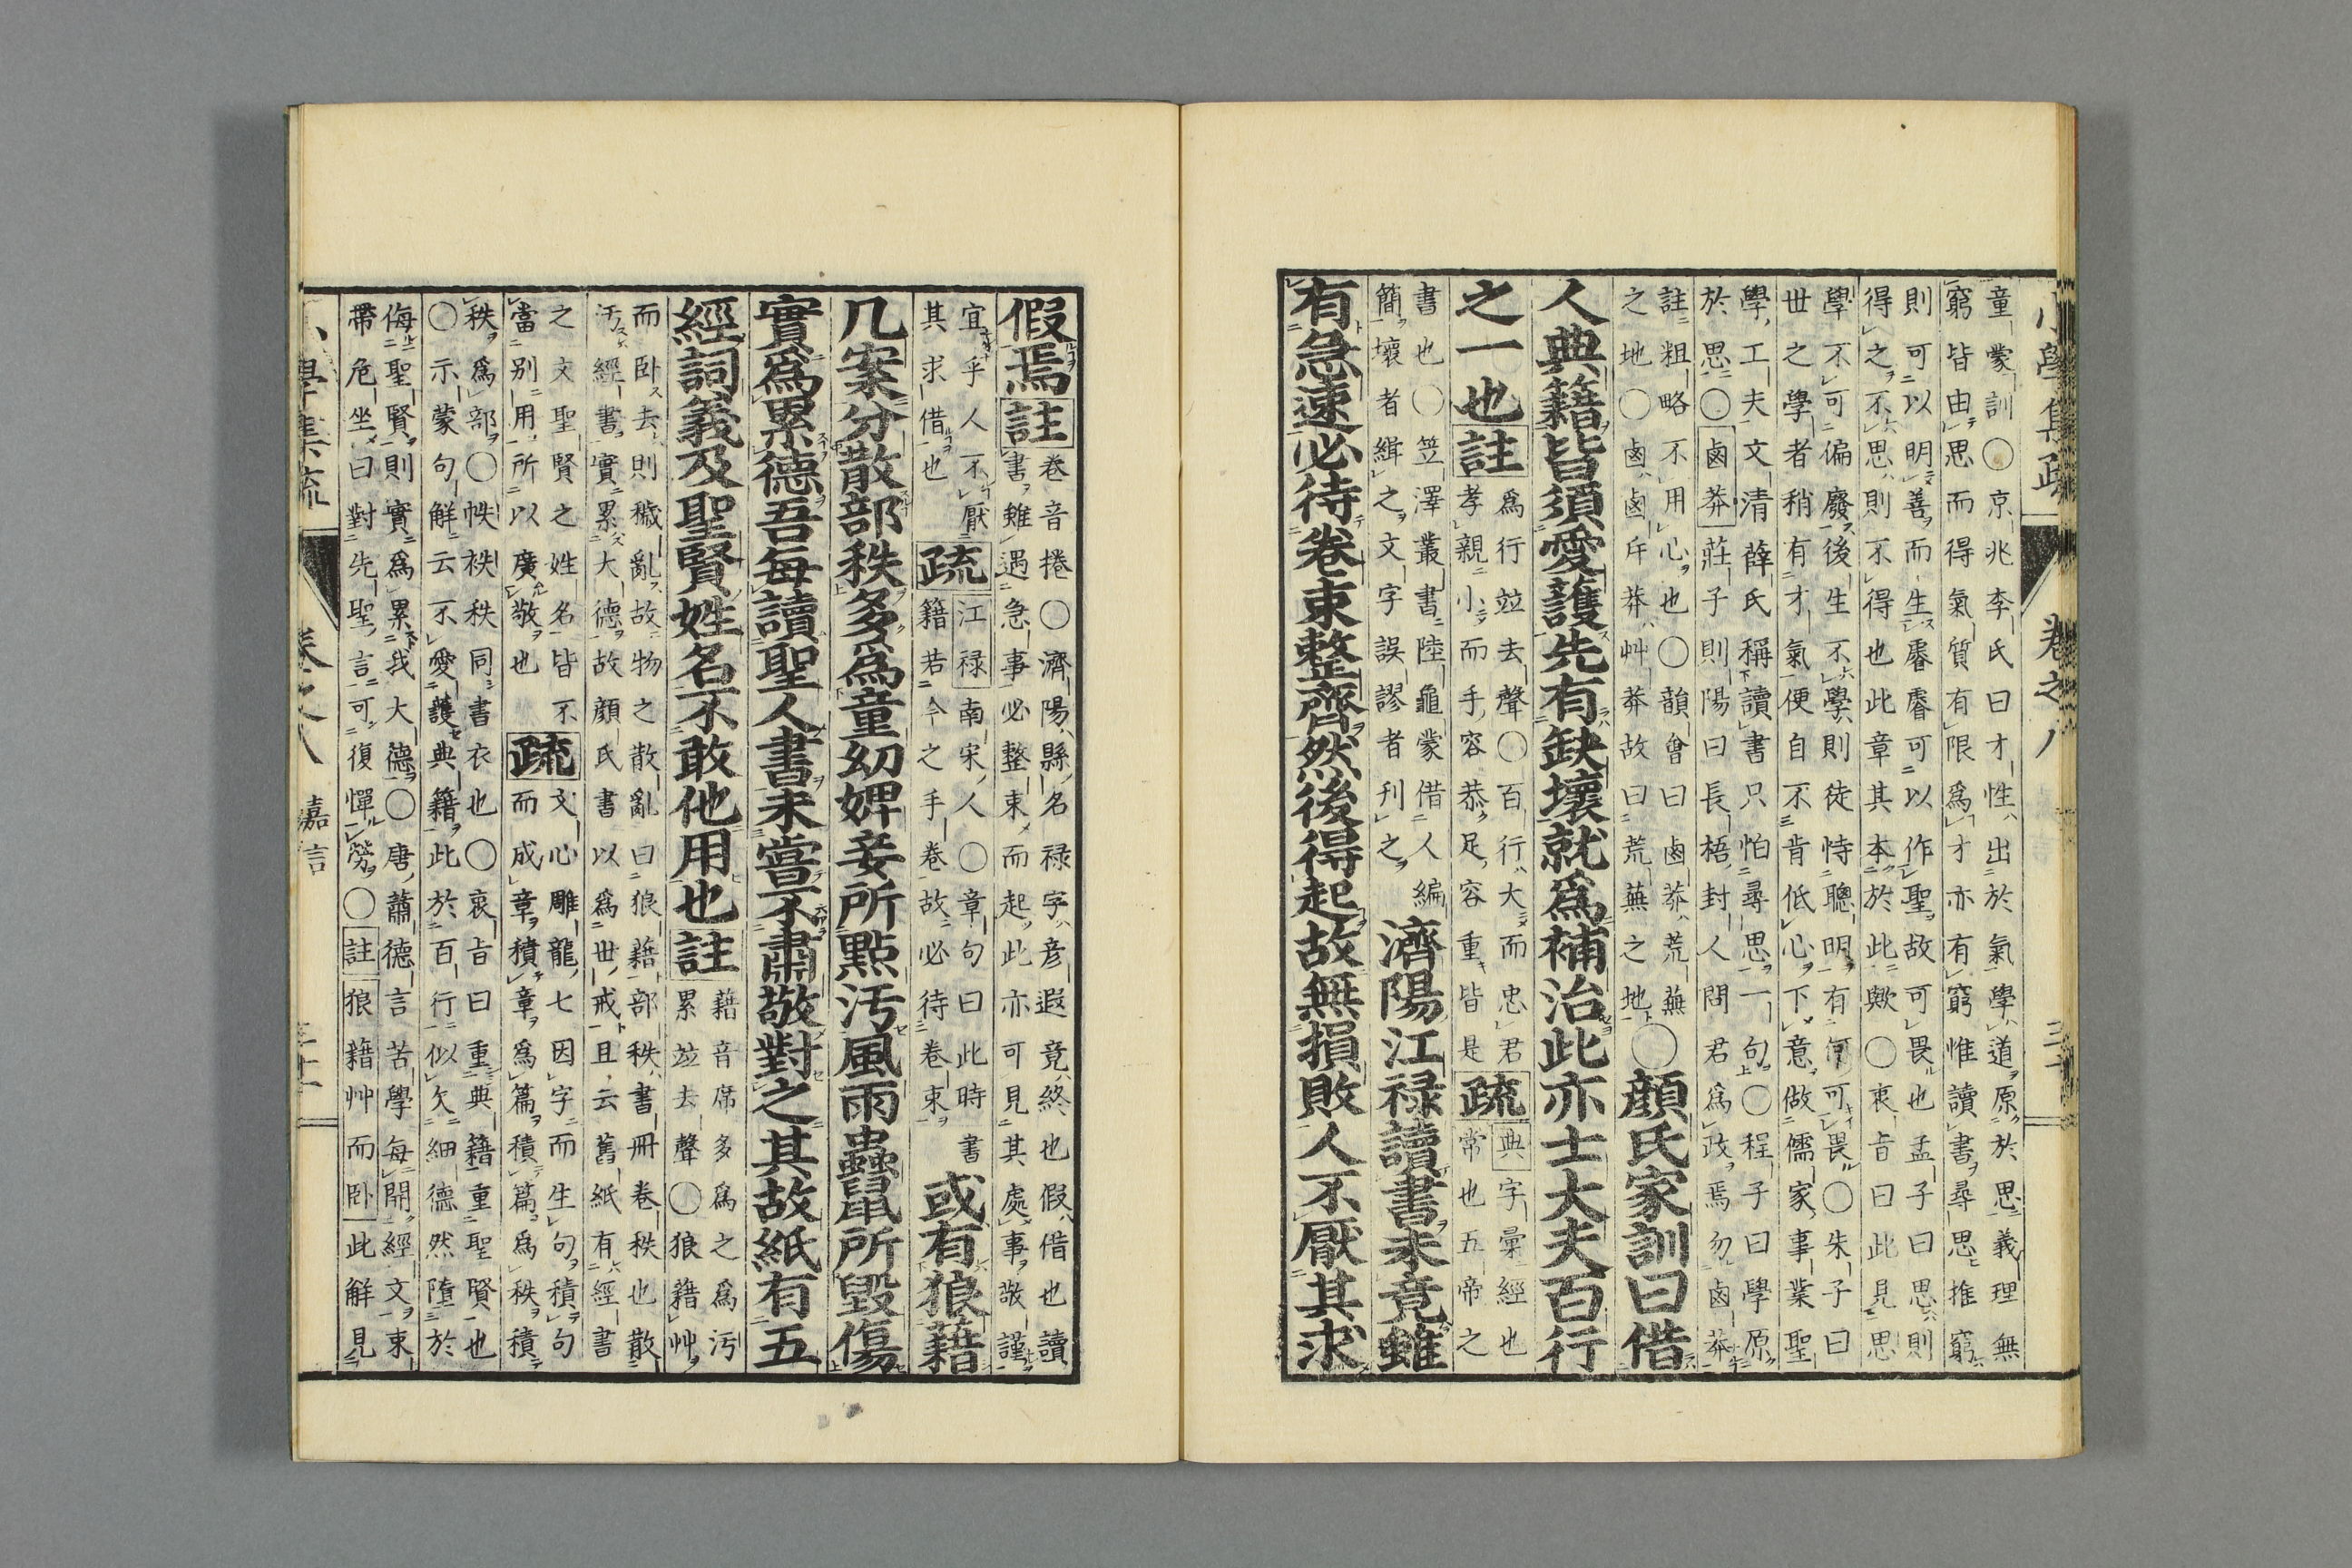 童蒙訓〇京兆李氏曰才性出於氣學道原於思義理無
窮皆由思而得氣質有限爲才亦有窮惟讀書尋思推窮
則可以明善而生睿睿可以作聖故可畏也孟子曰思則
得之不思則不得也此章其本於此歟〇衷旨曰此見思
學不可偏廢後生不學則徒恃聰明有何可畏〇朱子曰
丗之學者稍有才氣便自不肯低心下意做儒家事業聖
學工夫文清薛氏稱讀書只怕尋思一句〇程子曰學原
於思〇鹵莽莊子則陽曰長梧封人問君爲政焉勿鹵莽
註粗略不用心也〇韻會曰鹵莽荒蕪
之地〇鹵鹵斥莽艸莽故曰荒蕪之地
〇顔氏家訓曰借
人典籍皆須愛護先有缺壞就爲補治此亦士大夫百行
之一也註
爲行竝去聲〇百行大而忠君
孝親小而手容恭足容重皆是
疏
典字彙經也
常也五帝之
書也〇笠澤叢書陸龜蒙借人編
簡壞者緝之文字誤謬者刊之
濟陽江禄讀書未竟雖
有急速必待卷束整齊然後得起故無損敗人不厭其求
假焉註
卷音捲〇濟陽縣名禄字彦遐竟終也假借也讀
書雖遇急事必整束而起此亦可見其處事敬謹
宜乎人不厭
其求借也
疏
江禄南宋人〇章句曰此時書
籍若今之手卷故必待卷束
或有狼藉
几案分散部秩多爲童幼婢妾所點汚風雨蟲鼠所毀傷
實爲累德吾每讀聖人書未嘗不肅敬對之其故紙有五
經詞義及聖賢姓名不敢他用也註
藉音席多爲之爲汚
累竝去聲〇狼籍艸
而卧去則穢亂故物之散亂曰狼藉部秩書冊卷秩也散
汚經書實累大德故顔氏書以爲丗戒且云舊紙有經書
之文聖賢之姓名皆不
當别用所以廣敬也
疏
文心雕龍七因字而生句積句
而成章積章爲篇積篇爲秩積
秩爲部〇帙袟秩同書衣也〇衷旨曰重典籍重聖賢也
〇示蒙句解云不愛護典籍此於百行似欠細德然墮於
侮聖賢則實爲累我大德〇唐蕭德言苦學每開經文束
帶危坐曰對先聖言可復憚勞〇註狼籍艸而卧此解見
卷之八 嘉言